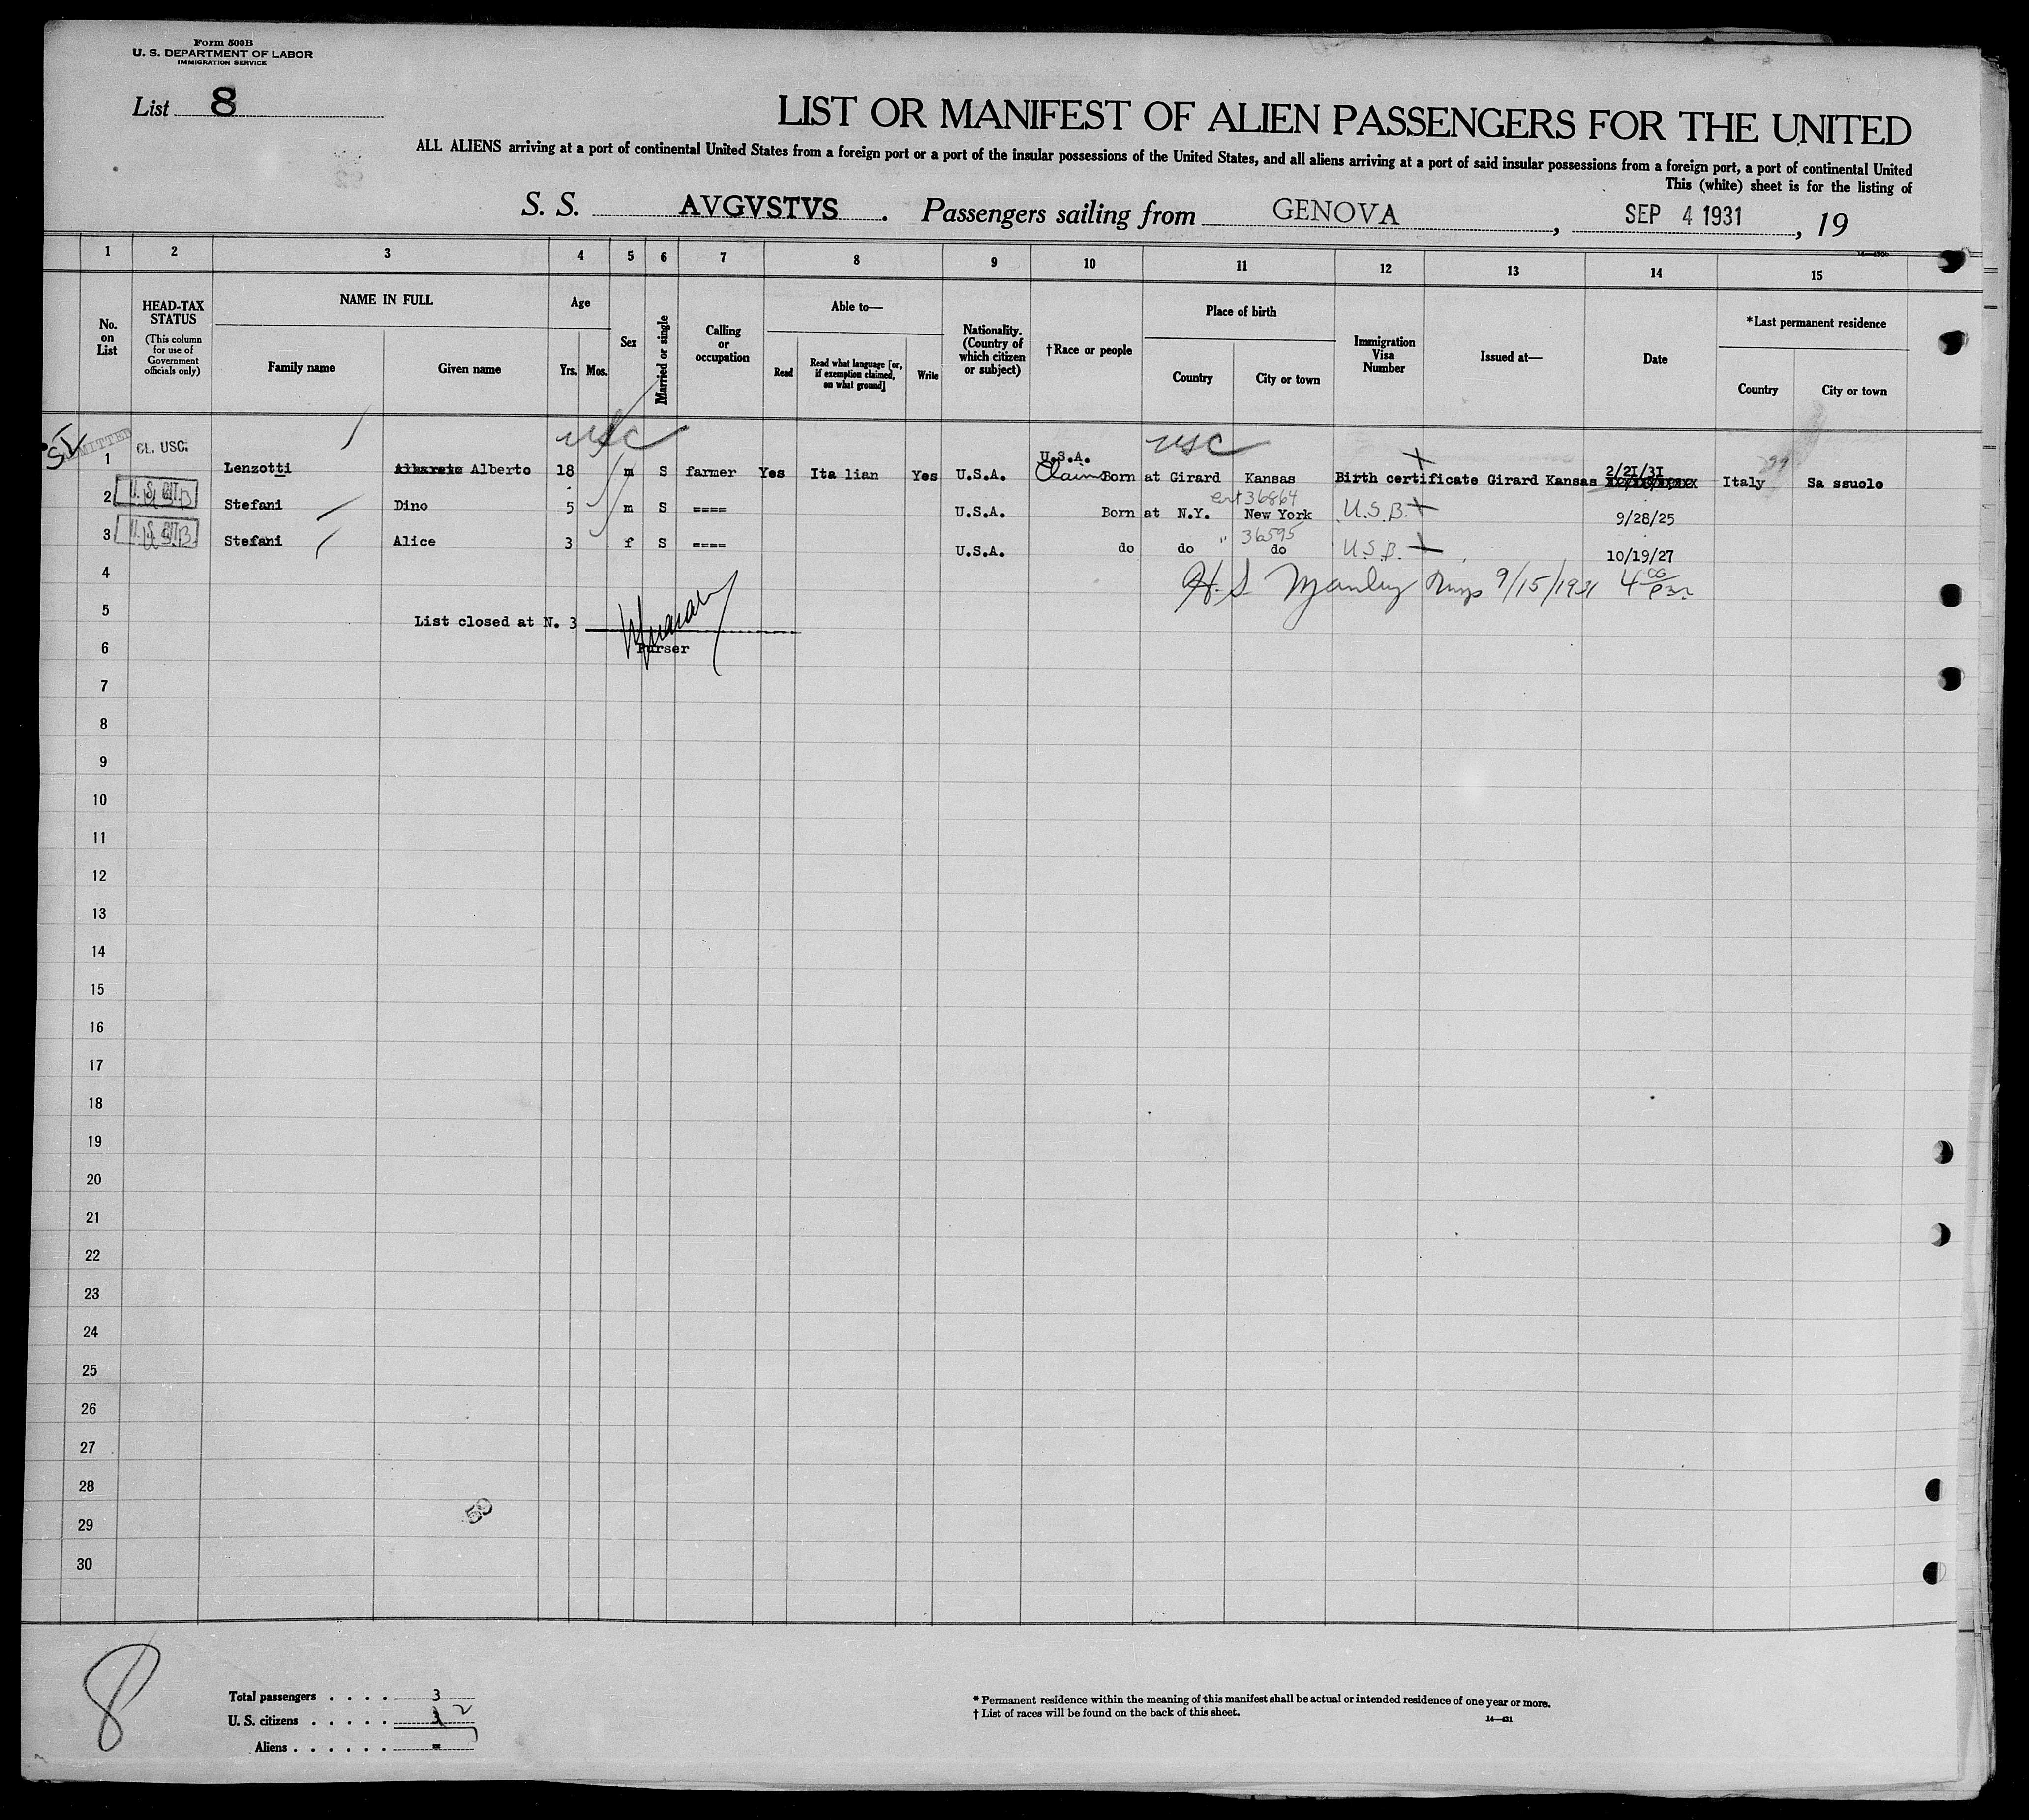 Form 500B
U. S. DEPARTMENT OF LABOR
IMMIGRATION SERVICE
List 8
LIST OR MANIFEST OF ALIEN PASSENGERS FOR THE UNITED
ALL ALIENS arriving at a port of continental United States from a foreign port or a port of the insular possessions of the United States, and all aliens arriving at a port of said insular possessions from a foreign port, a port of continental United
This (white) sheet is for the listing of
S. S. AVGVSTVS . Passengers sailing from GENOVA , SEP 4 1931 , 19
1 2 3 4 5 6 7 8 9 10 11 12 13 14 15
No. on List
HEAD-TAX STATUS
(This column for use of Government officials only)
NAME IN FULL
Family name
Given name
Age
Yrs. Mos.
Sex
Married or single
Calling or occupation
Able to—
Read
Read what language [or, if exemption claimed, on what ground]
Write
Nationality. (Country of which citizen or subject)
†Race or people
Place of birth
Country
City or town
Immigration Visa Number
Issued at—
Date
*Last permanent residence
Country
City or town
SI
CL. USC.
USC
USC
U.S.A.
1 Lenzotti Alberto 18 m S farmer Yes Ita lian Yes U.S.A. Claims Born at Girard Kansas Birth certificate Girard Kansas 2/21/31 Italy Sa ssuolo
cert 36864
2 U.S. CIT. Stefani Dino 5 m S ==== U.S.A. Born at N.Y. New York U.S.B. 9/28/25
" 36595
3 U.S. CIT. Stefani Alice 3 f S ==== U.S.A. do do do U.S.B. 10/19/27
4
H. S. Manley Insp 9/15/1931 4 00 Pm
5
List closed at N. 3
6
Purser
7
8
9
10
11
12
13
14
15
16
17
18
19
20
21
22
23
24
25
26
27
28
29
30
50
8
Total passengers . . . . 3
U. S. citizens . . . . . 3 2
Aliens . . . . . . =
* Permanent residence within the meaning of this manifest shall be actual or intended residence of one year or more.
† List of races will be found on the back of this sheet.
14—431